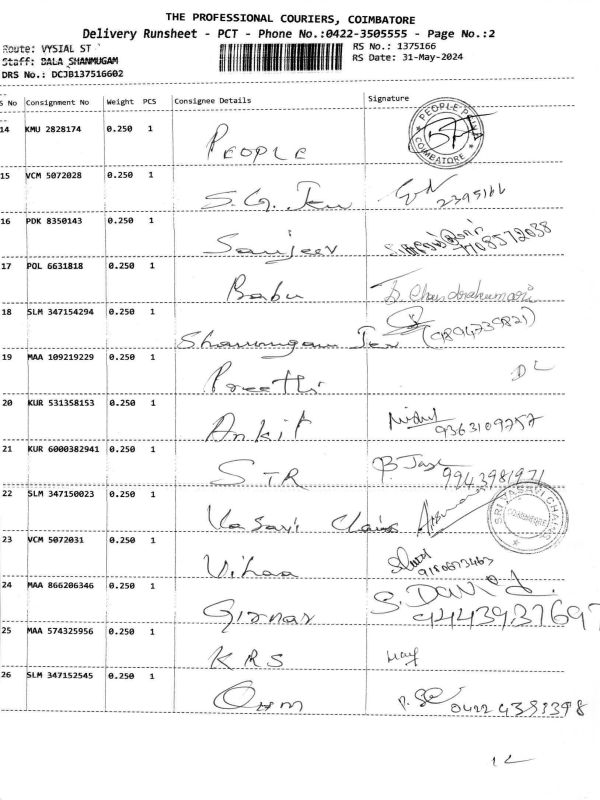 THE PROFESSIONAL COURIERS, COIMBATORE
Delivery Runsheet - PCT - Phone No.:0422-3505555 - Page No.:2
Route: VYSIAL ST
RS No.: 1375166
Staff: BALA SHANMUGAM
RS Date: 31-May-2024
DRS No.: DCJB137516602
S No Consignment No Weight PCS Consignee Details Signature
14 KMU 2828174 0.250 1 PEOPLE PEOPLE COIMBATORE
15 VCM 5072028 0.250 1 S.G. 2395166
16 PDK 8350143 0.250 1 Sanjeev 9708572038
17 POL 6631818 0.250 1 Babu B. Chandrakumari
18 SLM 347154294 0.250 1 Shanmugam Jew (9894739821)
19 MAA 109219229 0.250 1 Preethi DL
20 KUR 531358153 0.250 1 Ankit 9363109757
21 KUR 6000382941 0.250 1 STR 9943981971
22 SLM 347150023 0.250 1 Vasavi Chains SRI VASAVI CHAINS COIMBATORE
23 VCM 5072031 0.250 1 Vihaa
24 MAA 866206346 0.250 1 Girnar S. David. 9444393769
25 MAA 574325956 0.250 1 KRS
26 SLM 347152545 0.250 1 Ohm 0422 4393398
12